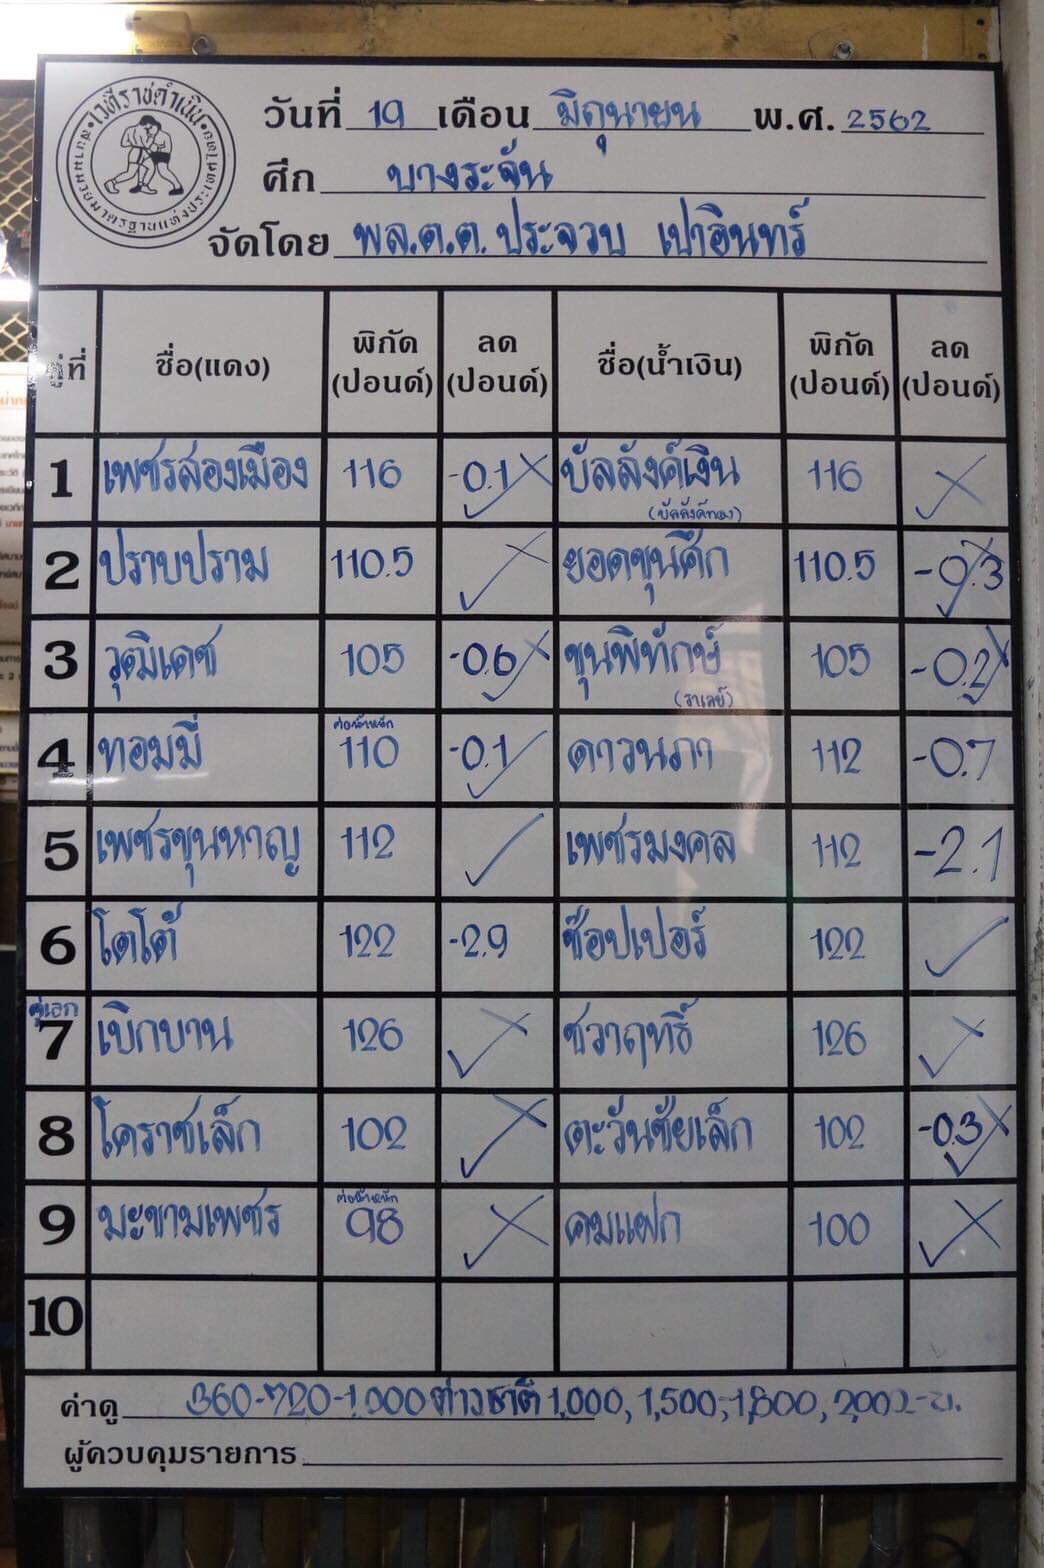 เวทีราชดำเนิน
วันที่ 19 เดือน มิถุนายน พ.ศ. 2562
ศึก บางระจัน
จัดโดย พล.ต.ต. ประจวบ เปาอินทร์
คู่ที่ ชื่อ(แดง) พิกัด (ปอนด์) ลด (ปอนด์) ชื่อ(น้ำเงิน) พิกัด (ปอนด์) ลด (ปอนด์)
1 เพชรสองเมือง 116 -0.1 บัลลังค์เงิน 116
(บัลลังค์ทอง)
2 ปราบปราม 110.5 ยอดขุนศึก 110.5 -0.3
3 วุฒิเดช 105 -0.6 ขุนพิทักษ์ 105 -0.2
4 ทอมมี่ ต่อน้ำหนัก 110 -0.1 ดาวนภา 112 -0.7
5 เพชรขุนหาญ 112 เพชรมงคล 112 -2.1
6 โตโต้ 122 -2.9 ช๊อปเปอร์ 122
คู่เอก
7 เบิกบาน 126 ชวาฤทธิ์ 126
8 โคราชเล็ก 102 ตะวันชัยเล็ก 102 -0.3
9 มะขามเพชร ต่อน้ำหนัก 98 คมแฝก 100
10
ค่าดู 360-720-1,000 ต่าวชาติ 1,000, 1,500,-1,800, 2,000.-บ.
ผู้ควบคุมรายการ